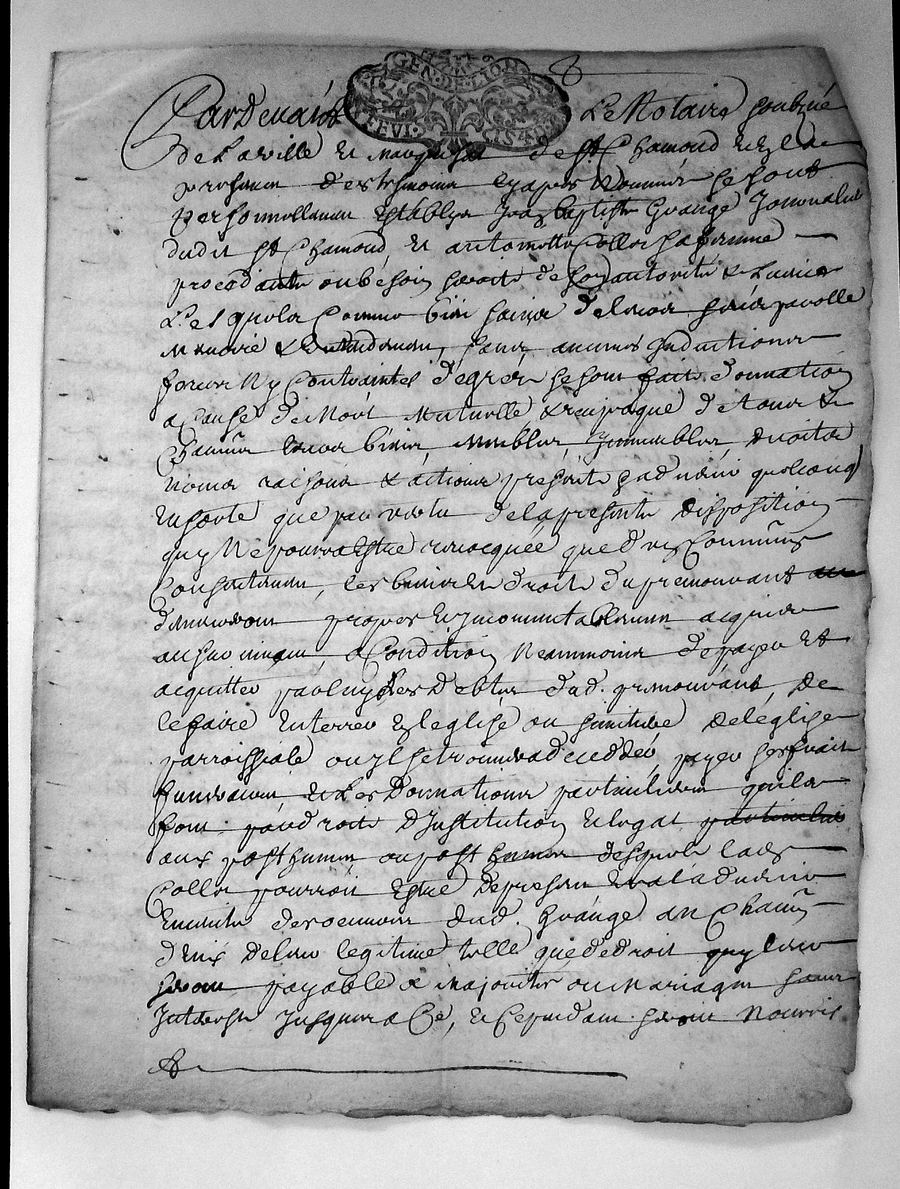 GEN DE LION
Pardevant Le Notaire soubzné
de la ville et marquisat de St Chamond et en
presence des tesmoins cy apres Nommés se sont
personnellemen establys Jean baptiste Grange Journalier
dudit St Chamond, et antoinette Collo sa femme
procedante au besoin soubs de son autorité &
Lesquels Comme bien
sans aucunes Inductions
force Ny Contraintes degres se sont faits donnation
a Cause de Mort Mutuelle & reciproque de tous &
Chacuns leurs biens, Meubles, Immeubles, droits
Noms raisons & actions presents & advenir quelconq
En sorte que par vertu de la presente disposition
quy Ne pourra Estre revocquée que d'un Commung
Consentemen, les biens et droits du premourant
demeureron propres et Incommutablemen acquis au
au survivant, a Condition Neammoins de payer et
acquitter par luy les debtes dud. premourant, de
le faire Enterrer En leglise ou simitiere de léglise
parroissiale ou yl se trouvera decedder, payer ses frais
funeraires, et les Donnations particulieres quils
font par droit d'Institution et legat
aux posthumes ou posthume desquels lad.
Collo pourroit Estre de presan et a ladvenir
Enceinte des oeuvres dud. Grange a un Chacun
d'eux de leur legitime telle que de droit quy leur
seron payable a Majorité ou Mariage sans
Interest Jusques a Ce, et Cependan seront Nourris